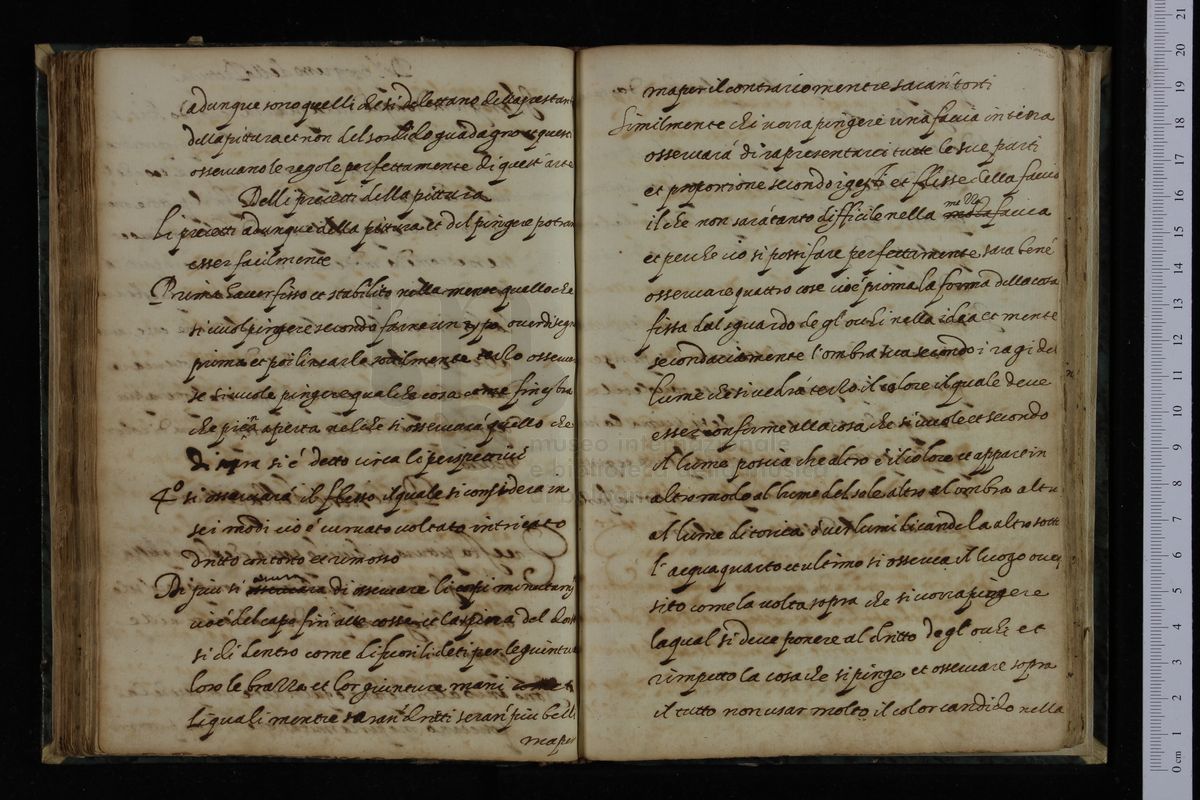 adunque sono quelli che si dilettano della prestan
della pitura et non del sordido guadagno et questi
osservano le regole perfettamente di quest'arte
Delli precetti della pittura
Li precetti adunque della pitura et del pingere potran
esser facilmente
Prima haver fisso et stabilito nella mente quello che
si vuol pingere secondo farne un typo over disegn
prima et poi linearlo sotilmente terzo osserva
se si vuole pingere qualche cosa come
che aperta nel che si osservará quello che
di sopra si é detto circa la perspectiva
4º si osservará il flesso il quale si considera in
sei modi cio é curvato voltato intricato
dritto contorto et rimosso
Di piu si di osservare li corpi minutam
cio é del capo fin alle cosse et la spina del dor
si di dentro come di fuori li deti per le giuntur
loro le brazza et lor giunture mani
li quali mentre saran dritti seran piu belli
ma per
ma per il contrario mentre saran torti
Similmente chi vorra pingere una facia intiera
osservará di rapresentarci tutte le sue parti
et proporzione secondo i gesti et flesse della facia
il che non sará tanto difficile nella mezza facia
et perche cio si possi fare perfettamente sara bene
osservare quattro cose cioè prima la forma della cosa
fissa dal sguardo degl'ochi nella idea et mente
secondariamente l'ombra sua secondo i ragi del
lume che si vedrá terzo il colore il quale deve
esser conforme alla cosa che si vuole et secondo
il lume poscia che altro é il colore et appare in
altro modo al lume del sole altro al ombra altro
al lume di torcia over lumi di candela altro sotto
l'acqua quarto et ultimo si osserva il luogo over
sito come la volta sopra che si vorra pingere
la qual si deve ponere al dritto degl'ochi et
rimpeto la cosa che si pinge et osservare sopra
il tutto non usar molto il color candido nella
museo internazionale
e biblioteca della musica